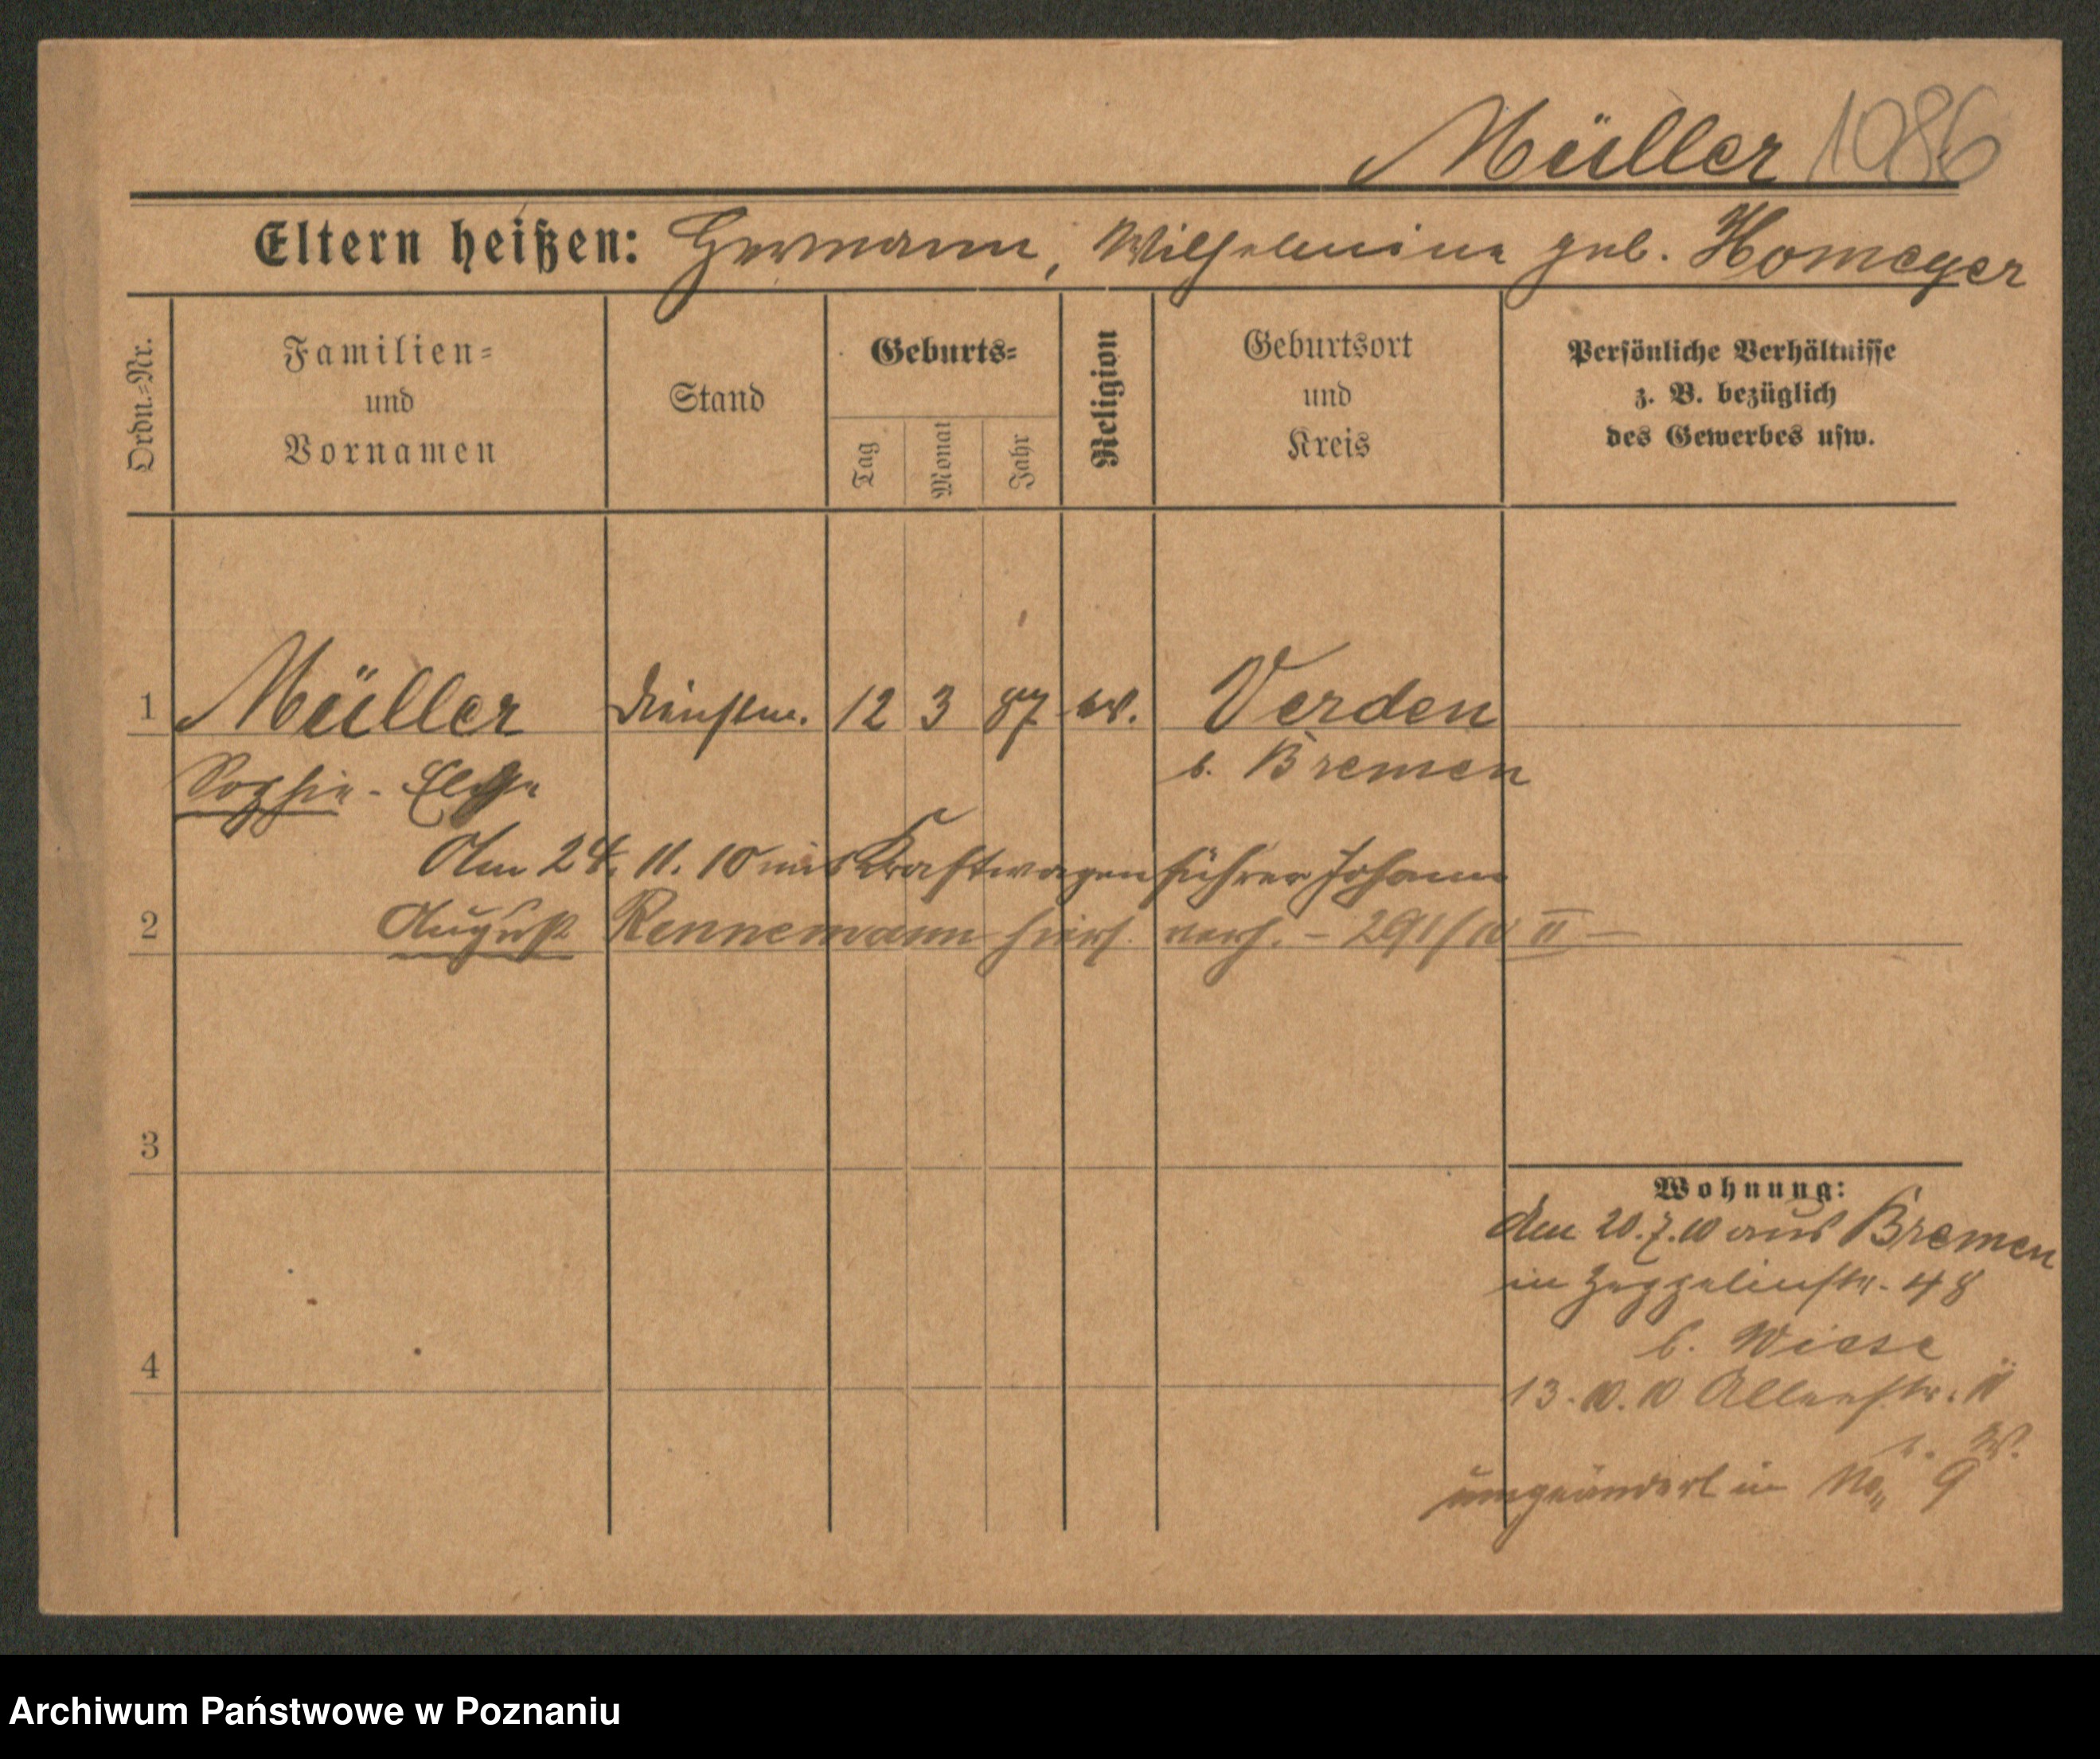 Müller 1086
Eltern heißen: Hermann, Wilhelmine geb. Homeyer
Ordn.=Nr.
Familien=
und
Vornamen
Stand
Geburts=
Tag
Monat
Jahr
Religion
Geburtsort
und
Kreis
Persönliche Verhältnisse
z. B. bezüglich
des Gewerbes usw.
1 Müller Dienstm. 12 3 87 ev. Verden
Sophie - b. Bremen
Am 24. 11. 10 mit Kraftwagenführer Johann
2 August Rennemann hiers. verh. - 291/10 II -
3
Wohnung:
Am 20.7.10 aus Bremen
in Zeppelinstr. 48
b. Wiese
4 13.10.10 Allerstr. 11
b. W.
umgeändert in No 9
Archiwum Państwowe w Poznaniu